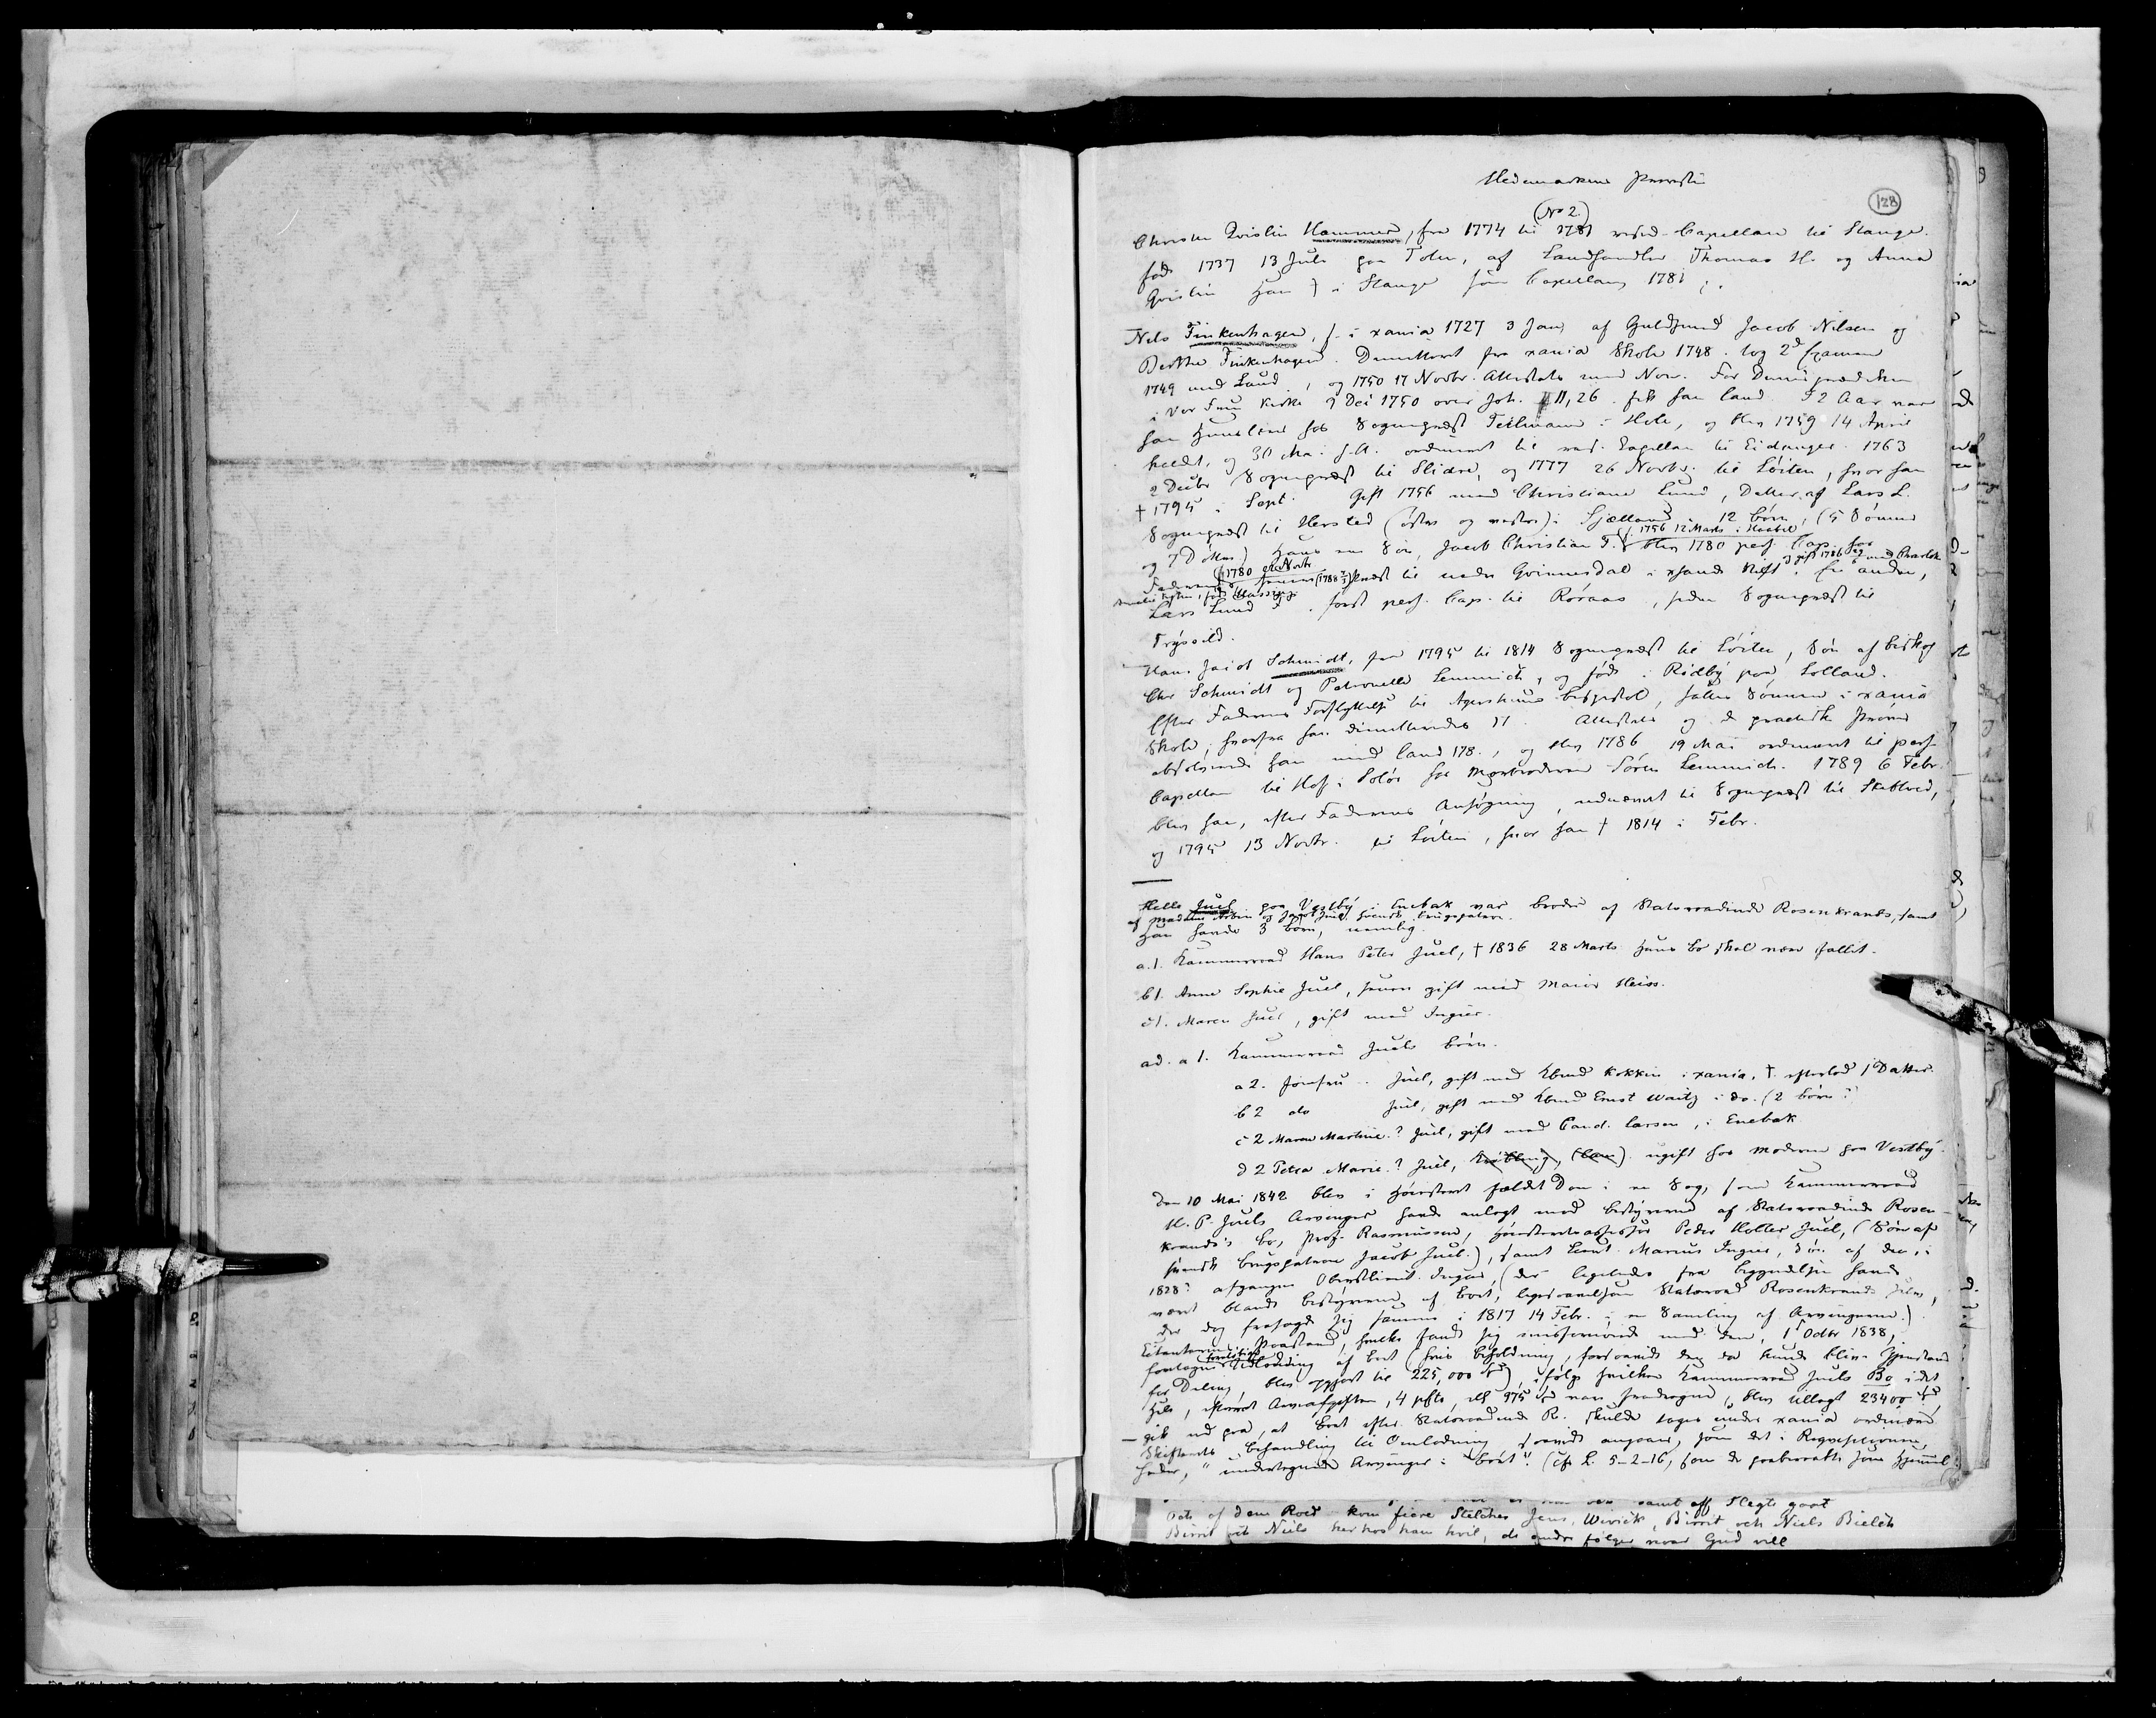 Hedemarkens Provsti
128
(No 2.)
Christen Qvislin Hammer, fra 1774 til 1781 resid. Capellan til Stange.
født 1737 13 Juli paa Toten, af Landhandler Thomas H. og Anna
Qvislin Han † i Stange som Capellan 1781
Nels Finkenhagen, f. i xania 1727 3 Jan af Guldsmed Jacob Nilsen og
Berthe Finkenhagen. Demitteret fra xania Skole 1748. tog 2d Examen
1749 med Laud, og 1750 17 Novbr. Attestats med Non. For Dimisprædiken
i Vor Frue Kirke 9 Dec 1750 over Joh. 11,26. fik han laud. I 2 Aar var
han Huuslærer hos Sognepræst Teilmann i Hole, og blev 1759 14 April
kaldet, og 30 Mai s.A. ordineret til resd. Capellan til Eidanger. 1763
2 Decbr Sognepræst til Slidre, og 1777 26 Novbr. til Löiten, hvor han
† 1795 i Sept. Gift 1756 med Christiane Lund, Datter af Lars L.
Sognepræst til Hersted (öster og vester) i Sjælland 12 börn, (5 Sönner
og 7 Döttre) Hans ene Sön, Jacob Christian F. f. 1756 12 Marts i Haabøl blev 1780 pers. Cap. for
Faderen (1780 Novbr (1788 præst til nedre Qvinnesdal i xsands Stift, og gift 1786 med Charlotte
født Massing. En anden,
Lars Lund F. først pers. Cap. til Röraas, siden Sognepræst til
Trysild.
Hans Jacob Schmidt, fra 1795 til 1814 Sognepræst til Löiten, Sön af biskop
Chr Schmidt og Petronelle Lemmich, og født i Rödby paa Lolland.
Efter Faderens Forflyttelse til Agershuus bispestol, sattes Sönnen i xania
Skole, hvorfra han dimitteredes 17 Attestats og d practiske Pröve
absolverede han med laud 178., og blev 1786 19 Mai ordineret til pers.
Capellan til Hof i Solör hos Morbroderen Sören Lemmich. 1789 6 Febr.
blev han, efter Faderens Ansögning, udnævnt til Sognepræst til Skibtved,
og 1795 13 Novbr. til Löiten, hvor han † 1814 i Febr.
Helle Juel paa Vestby i Enebak var broder af Statsraadinde Rosenkrands, samt
af Madame Arbin og Jacob Juel, svensk brugspatron.
Han havde 3 börn, nemlig.
a.1. Kammerraad Hans Peter Juel, † 1836 28 Marts Hans bo skal være fallit.
b1. Anne Sophie Juel, gift med Maior Heiss.
c1. Maren Juel, gift med Ingier.
ad. a1. Kammerraad Juels börn.
a2. Jomfru Juel, gift med Kbmd Kokkin i xania. † efterlod 1 Datter.
b2 do Juel, gift med Kbmd Ernst Waitz i do. (2 börn?
c2 Maren Martine? Juel, gift med Cand. Larsen, i Enebak
d2 Petra Marie? Juel, ugift hos Moderen paa Vestby.
Den 10 Mai 1842 blev i Höiesteret fældet Dom i en Sag, som Kammerraad
H. P. Juels Arvinger havde anlagt mod bestyrerne af Statsraadinde Rosen-
krands's bo, Prof. Rasmussen, Höiesteretsassessor Peder Motter Juel, (Sön af
svensk brugspatron Jacob Juel), samt Lieut. Marius Ingier, Sön af den, i
1828? afgangne Oberstlieut. Ingier, (der ligeledes fra begyndelsen havde
været blandt bestyrerne af boet, ligesom Statsraad Rosenkrands
der dog frasagde sig samme i 1817 14 Febr. i en Samling af Arvingerne.)
Citanternes Paastand, hvilke fandt sig misfornöiede med den, 1st Octbr 1838,
foretagne foreløbige Udlodning af boet (hvis beholdning, forsaavidt den da kunde blive Gjenstand
for Deling, blev opgjort til 225,000 Spd), ifölge hvilken Kammerraad Juels Bo i det
Hele, efterat Arveafgiften, 4 pCto, elf 975 Spd var fradragen, blev tillagt 23400 Spd,
— gik ud paa, at boet efter Statsraadinde R. skulde tages under xania ordinære
Skifterets behandling til Omlodning, forsaavidt angaaer, som det i Reqvisitionen
heder, "undertegnede Arvinger i boet". (cfr L. 5-2-16, som de paaberaabte som Hjemmel)
samt aff Slegt goot
Pets af dem Roed kom fiere Stilcker Jens, Wivick, Birrit och Niels Bielck
Birrit och Niels her hos ham hvil, de andre følger naar Gud vill